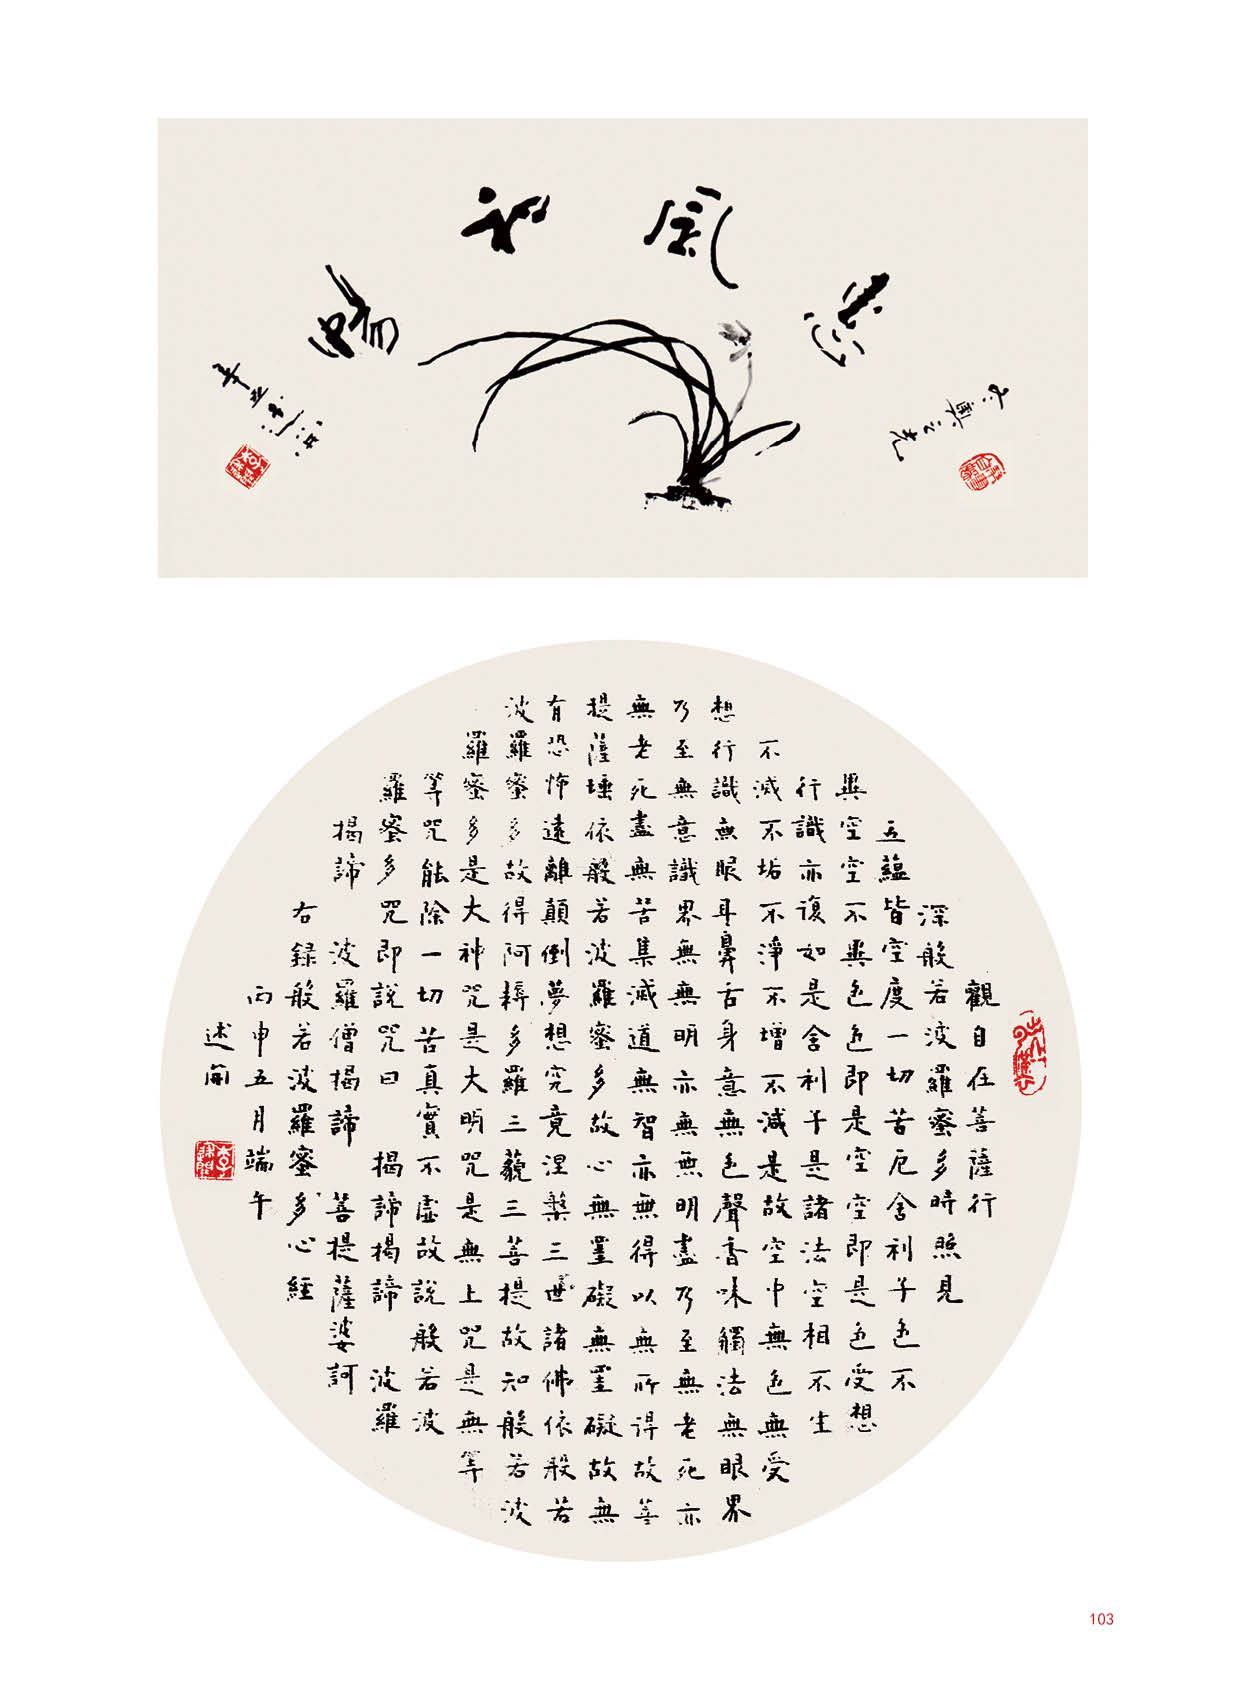 惠風和暢
觀自在菩薩行
深般若波羅蜜多時照見
五蘊皆空度一切苦厄舍利子色不
異空空不異色色即是空空即是色受想
行識亦復如是舍利子是諸法空相不生
不滅不垢不淨不增不減是故空中無色無受
想行識無眼耳鼻舌身意無色聲香味觸法無眼界
乃至無意識界無無明亦無無明盡乃至無老死亦
無老死盡無苦集滅道無智亦無得以無所得故菩
提薩埵依般若波羅蜜多故心無罣礙無罣礙故無
有恐怖遠離顛倒夢想究竟涅槃三世諸佛依般若
波羅蜜多故得阿耨多羅三藐三菩提故知般若波
羅蜜多是大神咒是大明咒是無上咒是無等
等咒能除一切苦真實不虛故說般若波
羅蜜多咒即說咒曰 揭諦揭諦 波羅
揭諦 波羅僧揭諦 菩提薩婆訶
右録般若波羅蜜多心經
丙申五月端午
述開
103